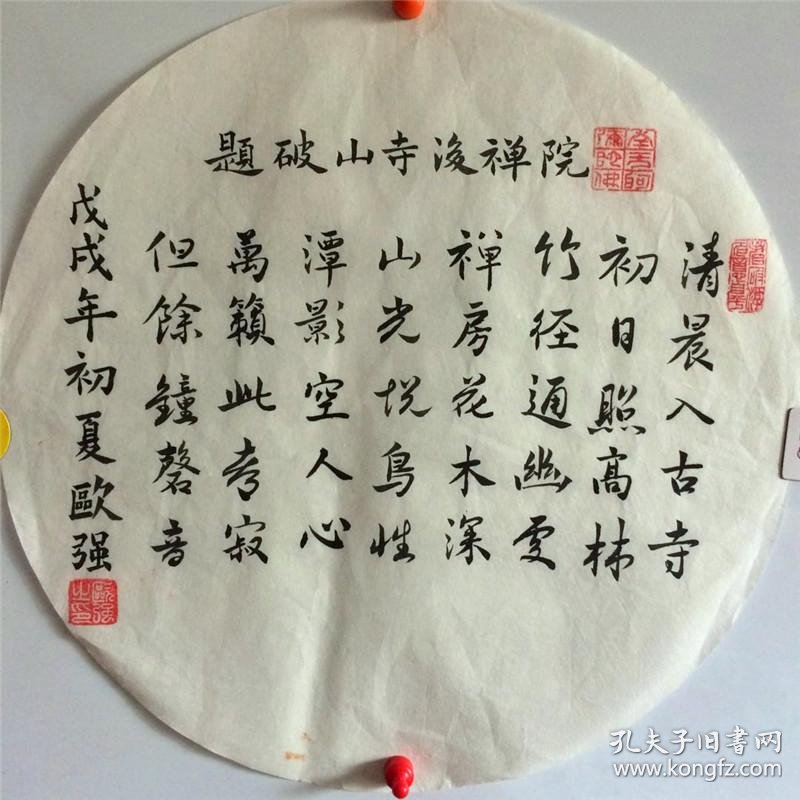 題破山寺後禅院
清晨入古寺
初日照髙林
竹径通幽处
禅房花木深
山光悦鳥性
潭影空人心
萬籟此皆寂
但餘鐘磬音
戊戌年初夏歐强
歐强之印
孔夫子旧书网
www.kongfz.com